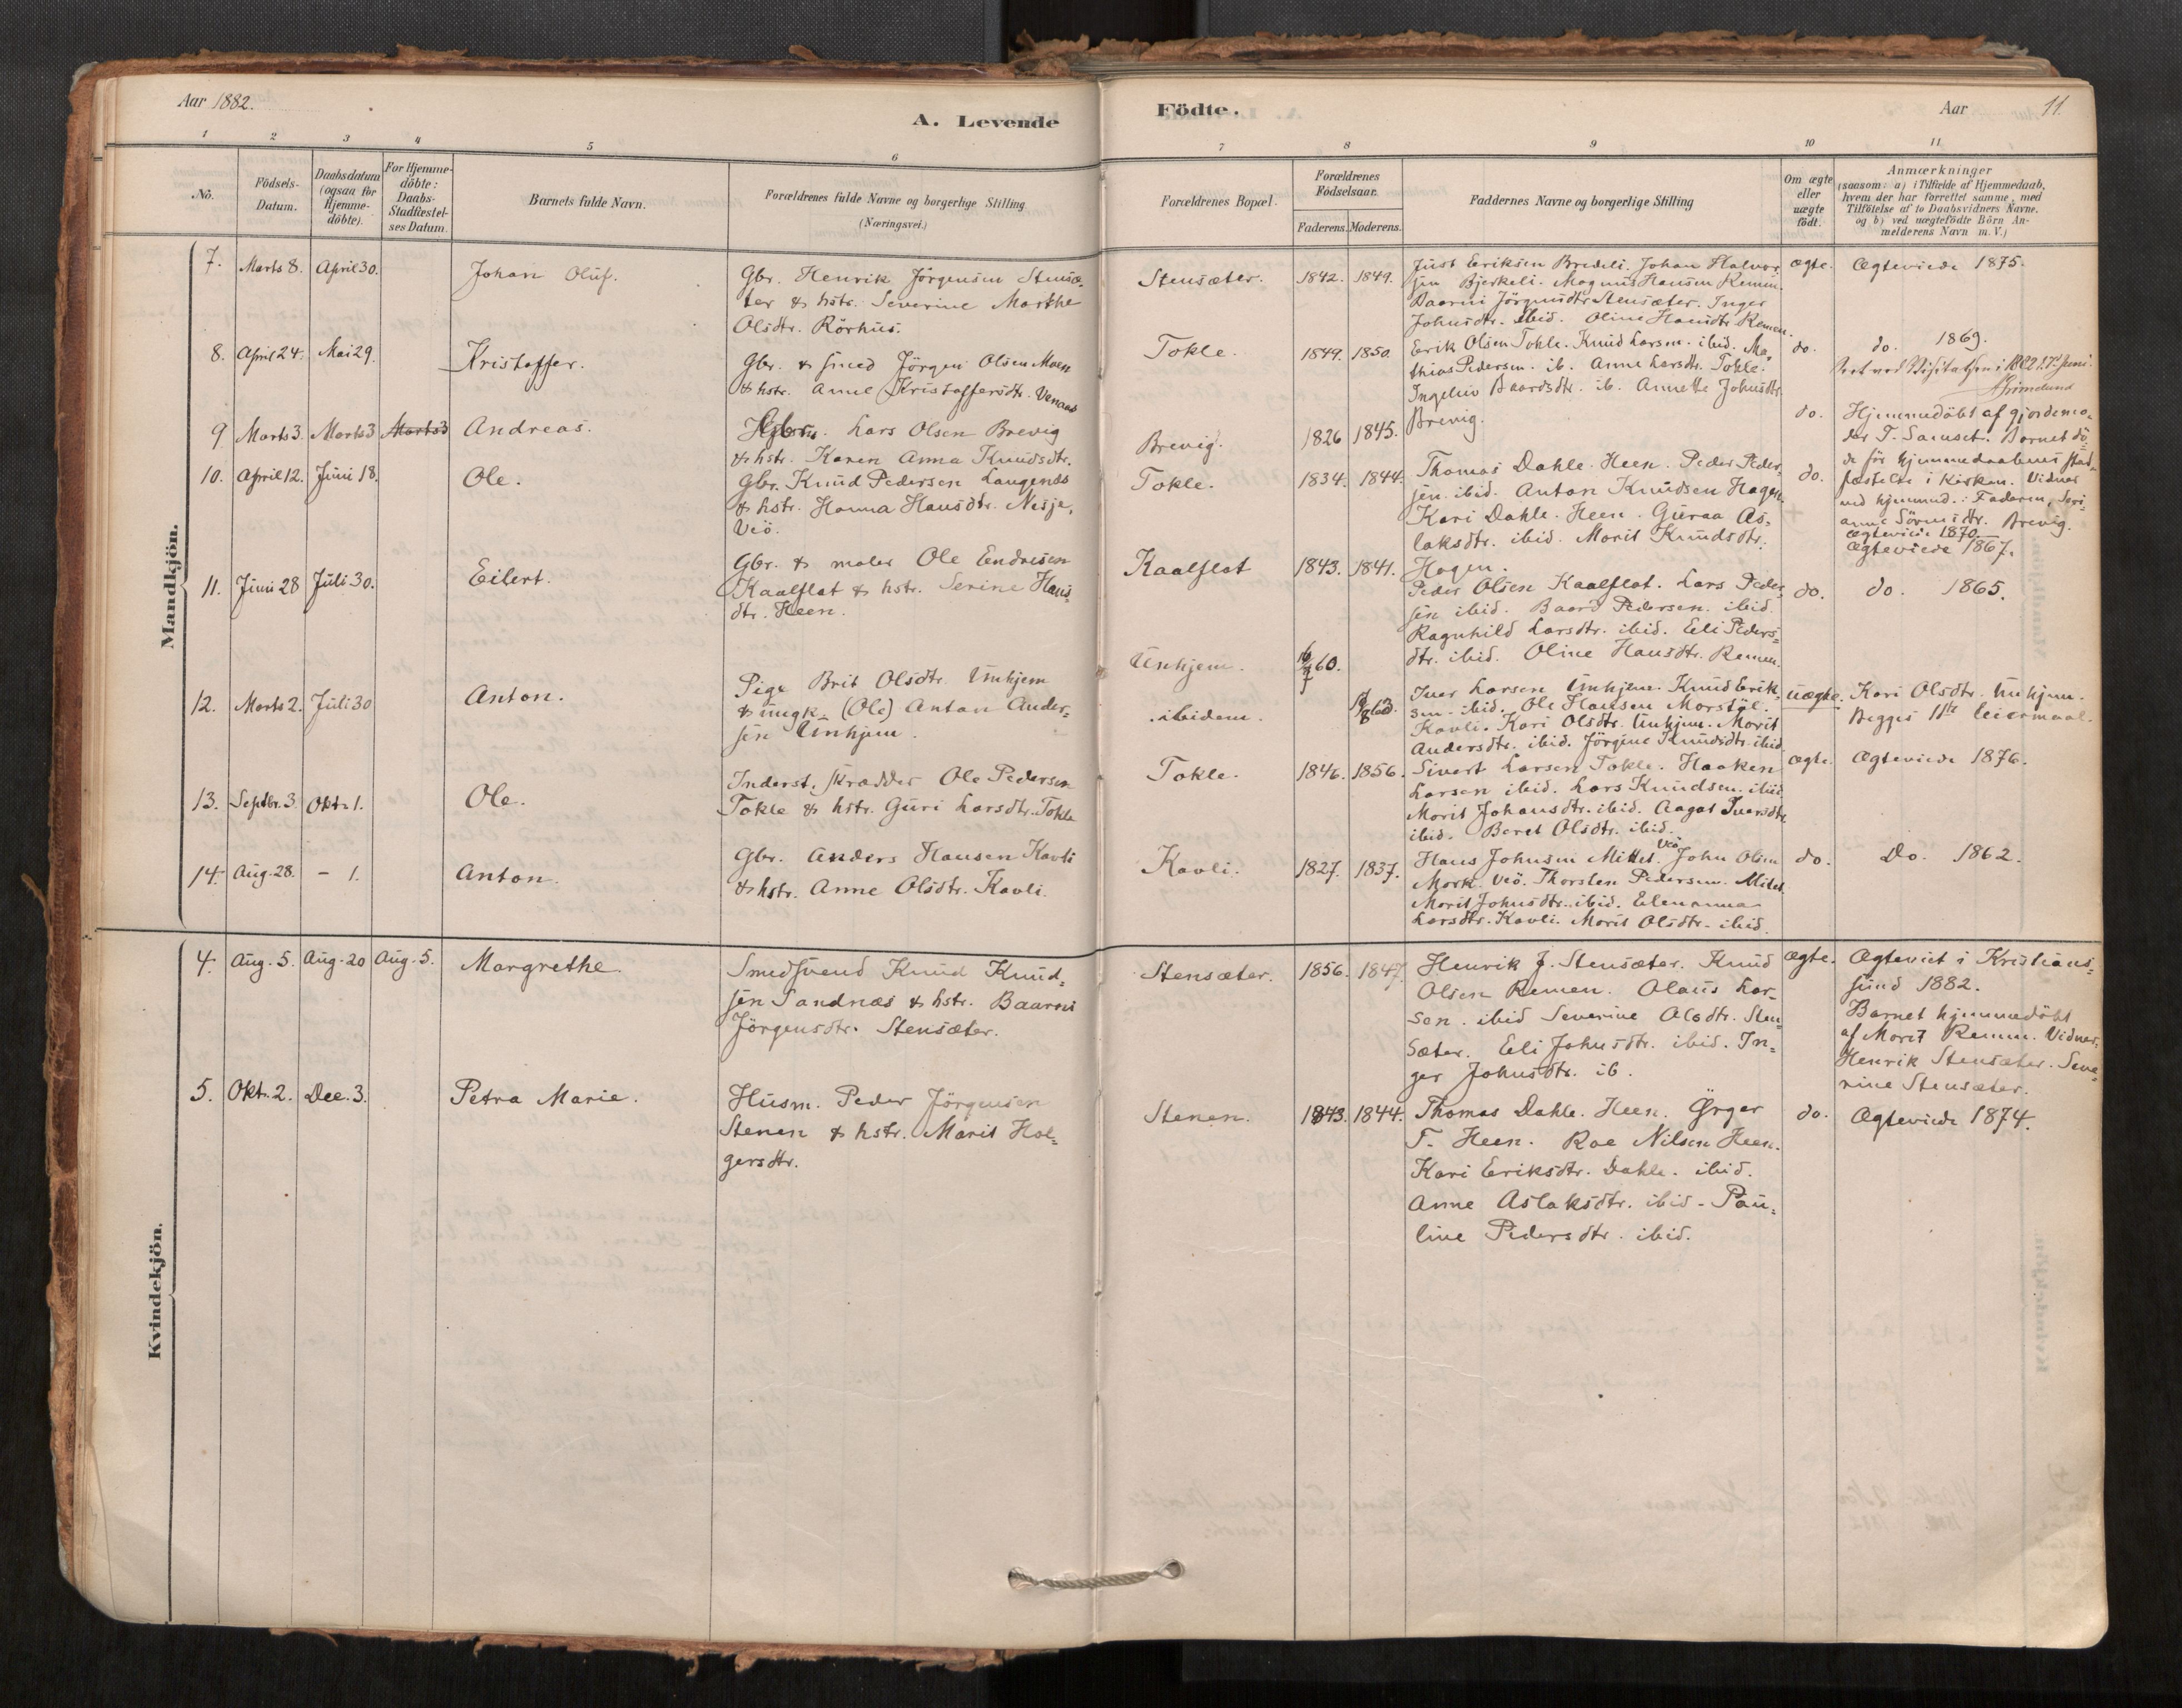 Aar 1882.
A. Levende
Födte.
Aar 11.
1 2 3 4 5 6 7 8 9 10 11
No.
Födsels-
Datum.
Daabsdatum
(ogsaa for
Hjemme-
döbte).
For Hjemme-
döbte:
Daabs-
Stadfæstel-
ses Datum.
Barnets fulde Navn.
Forældrenes fulde Navne og borgerlige Stilling
(Næringsvei.)
Forældrenes Bopæl.
Forældrenes
Födselsaar.
Faderens. Moderens.
Faddernes Navne og borgerlige Stilling
Om ægte
eller
uægte
födt.
Anmærkninger
(saasom: a) i Tilfælde af Hjemmedaab,
hvem der har forrettet samme, med
Tilföielse af to Daabsvidners Navne.
og b) ved uægtefödte Börn An-
melderens Navn m. V.)
Mandkjön.
7. Marts 8. April 30. Johan Oluf.
Gbr. Henrik Jörgensen Stensæ-
ter & hstr. Severine Marthe
Olsdtr. Rörhus.
Stensæter. 1842. 1849.
Just Eriksen Bredeli. Johan Halvor-
sen Bjerkeli. Magnus Hansen Remm.
Baarni Jörgensdtr Stensæter. Inger
Johnsdtr. ibid. Oline Hansdtr Remen.
ægte. Ægteviede 1875.
8. April 24. Mai 29. Kristoffer.
Gbr. & smed Jörgen Olsen Moen
& hstr. Anne Kristoffersdtr. Venaas
Tokle. 1849. 1850.
Erik Olsen Tokle. Knud Larsen. ibid. Ma-
thias Pedersen. ib. Anne Larsdtr. Tokle.
Ingeliv Baardsdtr. ib. Annette Johnsdtr.
do. do. 1869.
Seet ved Visitatsen i 1882 17de Juni.
Grimelund
9 Marts 3. Marts 3 Marts 3 Andreas.
Gbr. Lars Olsen Brevig
& hstr. Karen Anna Knudsdtr.
Brevig. 1826 1845. Brevig.
do. Hjemmedöbt af gjordemo-
der T. Sanset. Barnet dö-
de för hjemmedaabens stad-
fæstelse i Kirken. Vidner
ved hjemmed.: Faderen, Seri-
anne Sörensdtr. Brevig.
Ægteviede 1870.
10. April 12. Juni 18. Ole.
Gbr. Knud Pedersen Langenes
& hstr. Hanna Hansdtr. Nesje,
Veö.
Tokle. 1834. 1844.
Thomas Dahle. Heen. Peder Peder-
sen. ibid. Anton Knudsen Hagen.
Kari Dahle. Heen. Guraa As-
laksdtr. ibid. Marit Knudsdtr.
Hagen.
do. Ægteviede 1867.
11. Juni 28 Juli 30. Eilert.
Gbr. & maler Ole Endresen
Kaalflat & hstr. Serine Hans-
dtr. Heen.
Kaalflat 1843. 1841.
Peder Olsen Kaalflat. Lars Peder-
sen ibid. Baard Pedersen. ibid.
Ragnhild Larsdtr. ibid. Eli Peders-
dtr. ibid. Oline Hansdtr. Remen.
do. do. 1865.
12. Marts 2. Juli 30 Anton.
Pige Brit Olsdtr. Unhjem
& ungk. (Ole) Anton Ander-
sen Unhjem.
Unhjem. 60.
ibidem. 63.
Iver Larsen Unhjem. Knud Erik-
sen. ibid. Ole Hansen Morstöl.
Kavli. Kari Olsdtr. Unhjem. Marit
Andersdtr. ibid. Jörgine Knudsdtr. ibid.
uægte. Kari Olsdtr. Unhjem.
Begges 1ste leiermaal.
13. Septbr. 3. Oktr. 1. Ole.
Inderst. skrædder Ole Pedersen
Tokle & hstr. Guri Larsdtr. Tokle
Tokle. 1846. 1856.
Sivert Larsen Tokle. Haaken
Larsen ibid. Lars Knudsen. ibid.
Marit Johansdtr. ibid. Aagot Iversdtr.
ibid. Beret Olsdtr. ibid.
ægte. Ægteviede 1876.
14. Aug. 28. – 1. Anton.
Gbr. Anders Hansen Kavli
& hstr. Anne Olsdtr. Kavli.
Kavli. 1827. 1837.
Hans Johnsen Mittet. Veö John Olsen
Mork. Veö. Thorsten Pedersen. Mittet.
Marit Johnsdtr. ibid. Elenanna
Larsdtr. Kavli. Marit Olsdtr. ibid.
do. Do. 1862.
Kvindekjön.
4. Aug. 5. Aug. 20 Aug. 5. Margrethe.
Smedsvend Knud Knud-
sen Sandnæs & hstr. Baarni
Jörgensdtr. Stensæter.
Stensæter. 1856. 1847.
Henrik J. Stensæter. Knud
Olsen Remen. Olaus Lar-
sen. ibid Severine Olsdtr. Sten-
sæter. Eli Johnsdtr. ibid. In-
ger Johnsdtr. ib.
ægte. Ægteviet i Kristians-
sund 1882.
Barnet hjemmedöbt
af Marit Remm. Vidner:
Henrik Stensæter. Seve-
rine Stensæter.
5. Oktr. 2. Dec. 3. Petra Marie.
Husm. Peder Jörgensen
Stenen & hstr. Marit Hol-
gersdtr.
Stenen. 1843. 1844.
Thomas Dahle. Heen. Örger
T. Heen. Roe Nilsen Heen.
Kari Eriksdtr. Dahle. ibid.
Anne Aslaksdtr. ibid. Pau-
line Pedersdtr. ibid.
do. Ægteviede 1874.